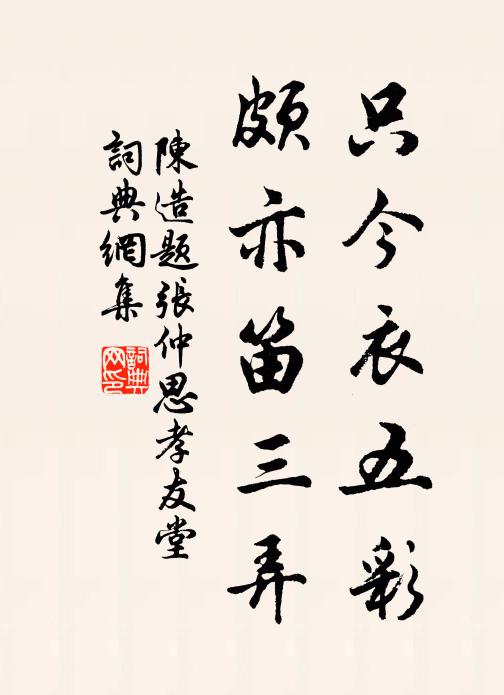 只今衣五彩
頗亦笛三弄
陳造題張仲思孝友堂
詞典網集
詞典网印